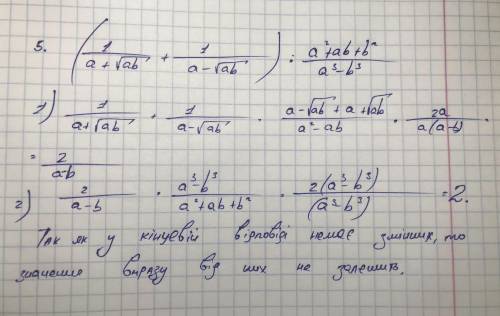 5. (1/(a + √ab) + 1/(a - √ab)) : (a²+ab+b²)/(a³-b³)
1) 1/(a+√ab) + 1/(a-√ab) = (a-√ab + a + √ab)/(a²-ab) = 2a/(a(a-b))
= 2/(a-b)
2) 2/(a-b) · (a³-b³)/(a²+ab+b²) = 2(a³-b³)/(a³-b³) = 2.
Так як у кінцевій відповіді немає змінних, то
значення виразу від них не залежить.